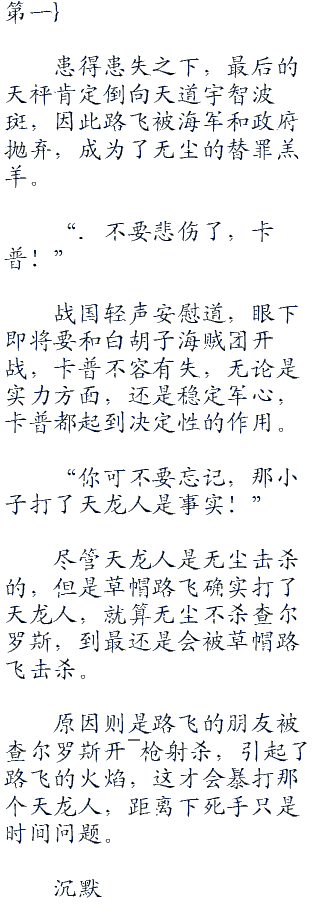 第一}
患得患失之下，最后的
天秤肯定倒向天道宇智波
斑，因此路飞被海军和政府
抛弃，成为了无尘的替罪羔
羊。
“．不要悲伤了，卡
普！”
战国轻声安慰道，眼下
即将要和白胡子海贼团开
战，卡普不容有失，无论是
实力方面，还是稳定军心，
卡普都起到决定性的作用。
“你可不要忘记，那小
子打了天龙人是事实！”
尽管天龙人是无尘击杀
的，但是草帽路飞确实打了
天龙人，就算无尘不杀查尔
罗斯，到最还是会被草帽路
飞击杀。
原因则是路飞的朋友被
查尔罗斯开¯枪射杀，引起了
路飞的火焰，这才会暴打那
个天龙人，距离下死手只是
时间问题。
沉默